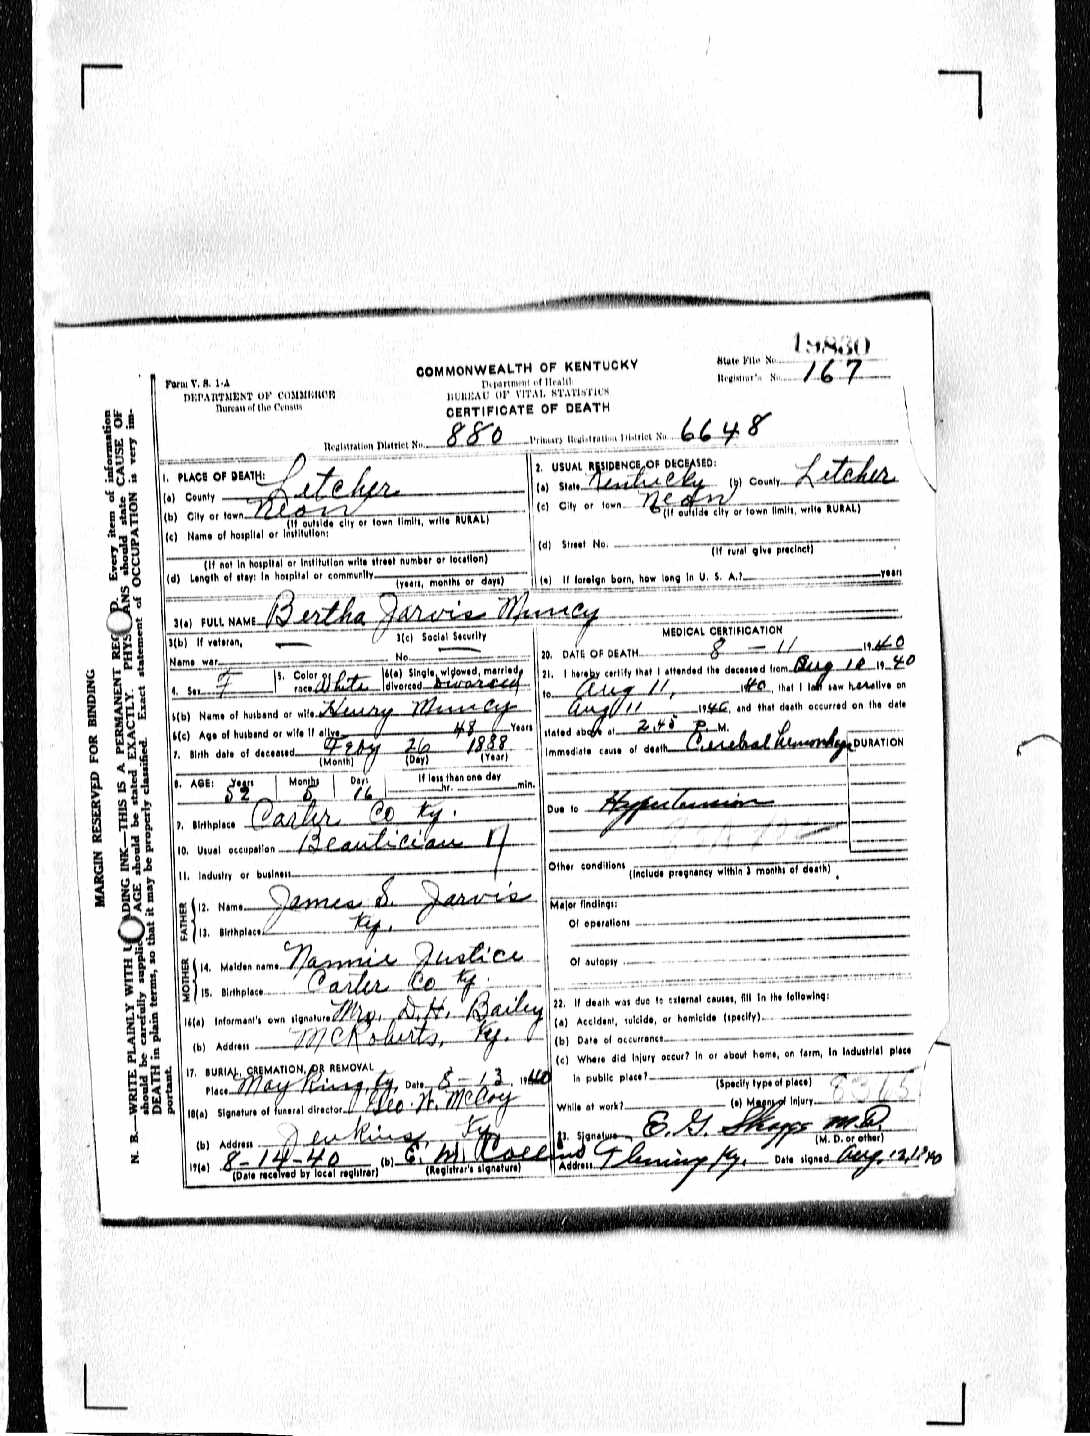 19830
State File No.
Registrar's No. 167
Form V. S. 1-A
DEPARTMENT OF COMMERCE
Bureau of the Census
COMMONWEALTH OF KENTUCKY
Department of Health
BUREAU OF VITAL STATISTICS
CERTIFICATE OF DEATH
Registration District No. 880 Primary Registration District No. 6648
MARGIN RESERVED FOR BINDING
N. B.—WRITE PLAINLY WITH DING INK—THIS IS A PERMANENT Every item of information
should be carefully AGE should be stated EXACTLY. should state CAUSE OF
DEATH in plain terms, so that it may be properly classified. Exact statement of OCCUPATION is very im-
portant.
1. PLACE OF DEATH:
(a) County Letcher
(b) City or town Neon
(If outside city or town limits, write RURAL)
(c) Name of hospital or institution:
(If not in hospital or institution write street number or location)
(d) Length of stay: In hospital or community
(years, months or days)
2. USUAL RESIDENCE OF DECEASED:
(a) State Kentucky (b) County Letcher
(c) City or town Neon
(If outside city or town limits, write RURAL)
(d) Street No.
(If rural give precinct)
(e) If foreign born, how long in U. S. A.? years
3(a) FULL NAME Bertha Jarvis Muncy
3(b) If veteran, —
Name war
3(c) Social Security
No. —
4. Sex F
5. Color or race White
6(a) Single, widowed, married, divorced Divorced
6(b) Name of husband or wife Henry Muncy
6(c) Age of husband or wife if alive 48 Years
7. Birth date of deceased Feby 26 1888
(Month) (Day) (Year)
8. AGE: Years Months Days If less than one day
52 5 16 hr. min.
9. Birthplace Carter Co Ky.
10. Usual occupation Beautician
11. Industry or business
FATHER
12. Name James S. Jarvis
13. Birthplace Ky.
MOTHER
14. Maiden name Nannie Justice
15. Birthplace Carter Co Ky.
16(a) Informant's own signature Mrs. D. H. Bailey
(b) Address McRoberts, Ky.
17. BURIAL, CREMATION, OR REMOVAL
Place May King, Ky. Date 8-13, 1940
18(a) Signature of funeral director Geo. W. McCoy
(b) Address Jenkins, Ky
19(a) 8-14-40 (b) E. M. Collins
(Date received by local registrar) (Registrar's signature)
MEDICAL CERTIFICATION
20. DATE OF DEATH 8 - 11 1940
21. I hereby certify that I attended the deceased from Aug 10 1940
to Aug 11, 1940, that I last saw her alive on
Aug 11 1940, and that death occurred on the date
stated above at 2.45 P. M.
Immediate cause of death Cerebral hemorrhage DURATION
Due to Hypertension
Other conditions
(Include pregnancy within 3 months of death)
Major findings:
Of operations
Of autopsy
22. If death was due to external causes, fill in the following:
(a) Accident, suicide, or homicide (specify)
(b) Date of occurrence
(c) Where did injury occur? In or about home, on farm, in industrial place
in public place?
(Specify type of place)
While at work? (e) Means of Injury
23. Signature E. G. Skaggs M.D.
(M. D. or other)
Address Fleming Ky. Date signed Aug. 12, 1940